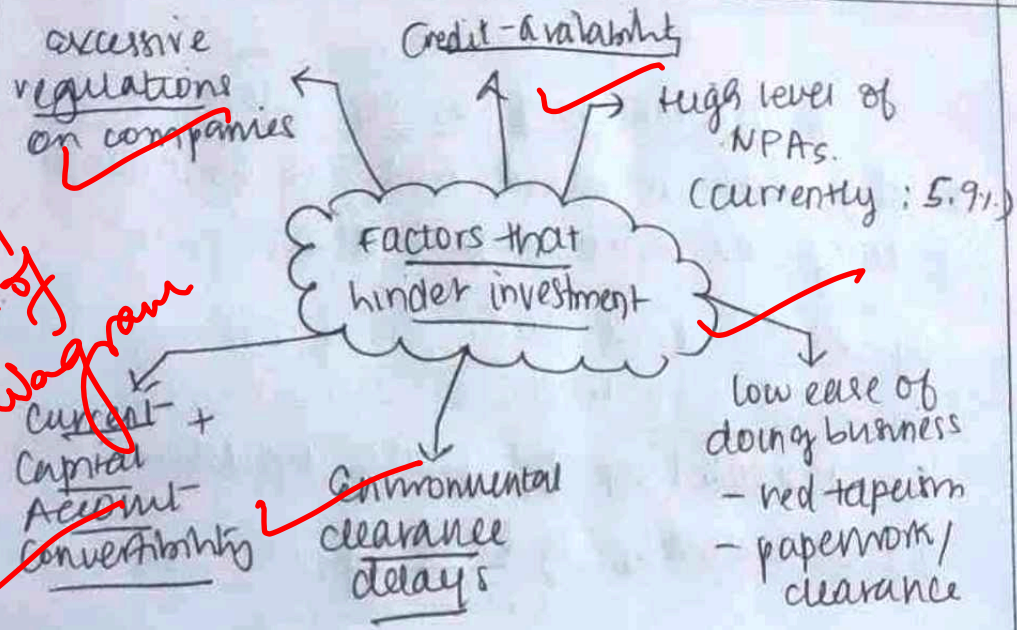 excessive
regulations
on companies
Credit-avalability
High level of
NPAs.
(currently : 5.9%)
Factors that
hinder investment
of
diagram
Current +
Capital
Account
Convertibility
Environmental
clearance
delays
low ease of
doing business
- red tapeism
- paperwork/
clearance